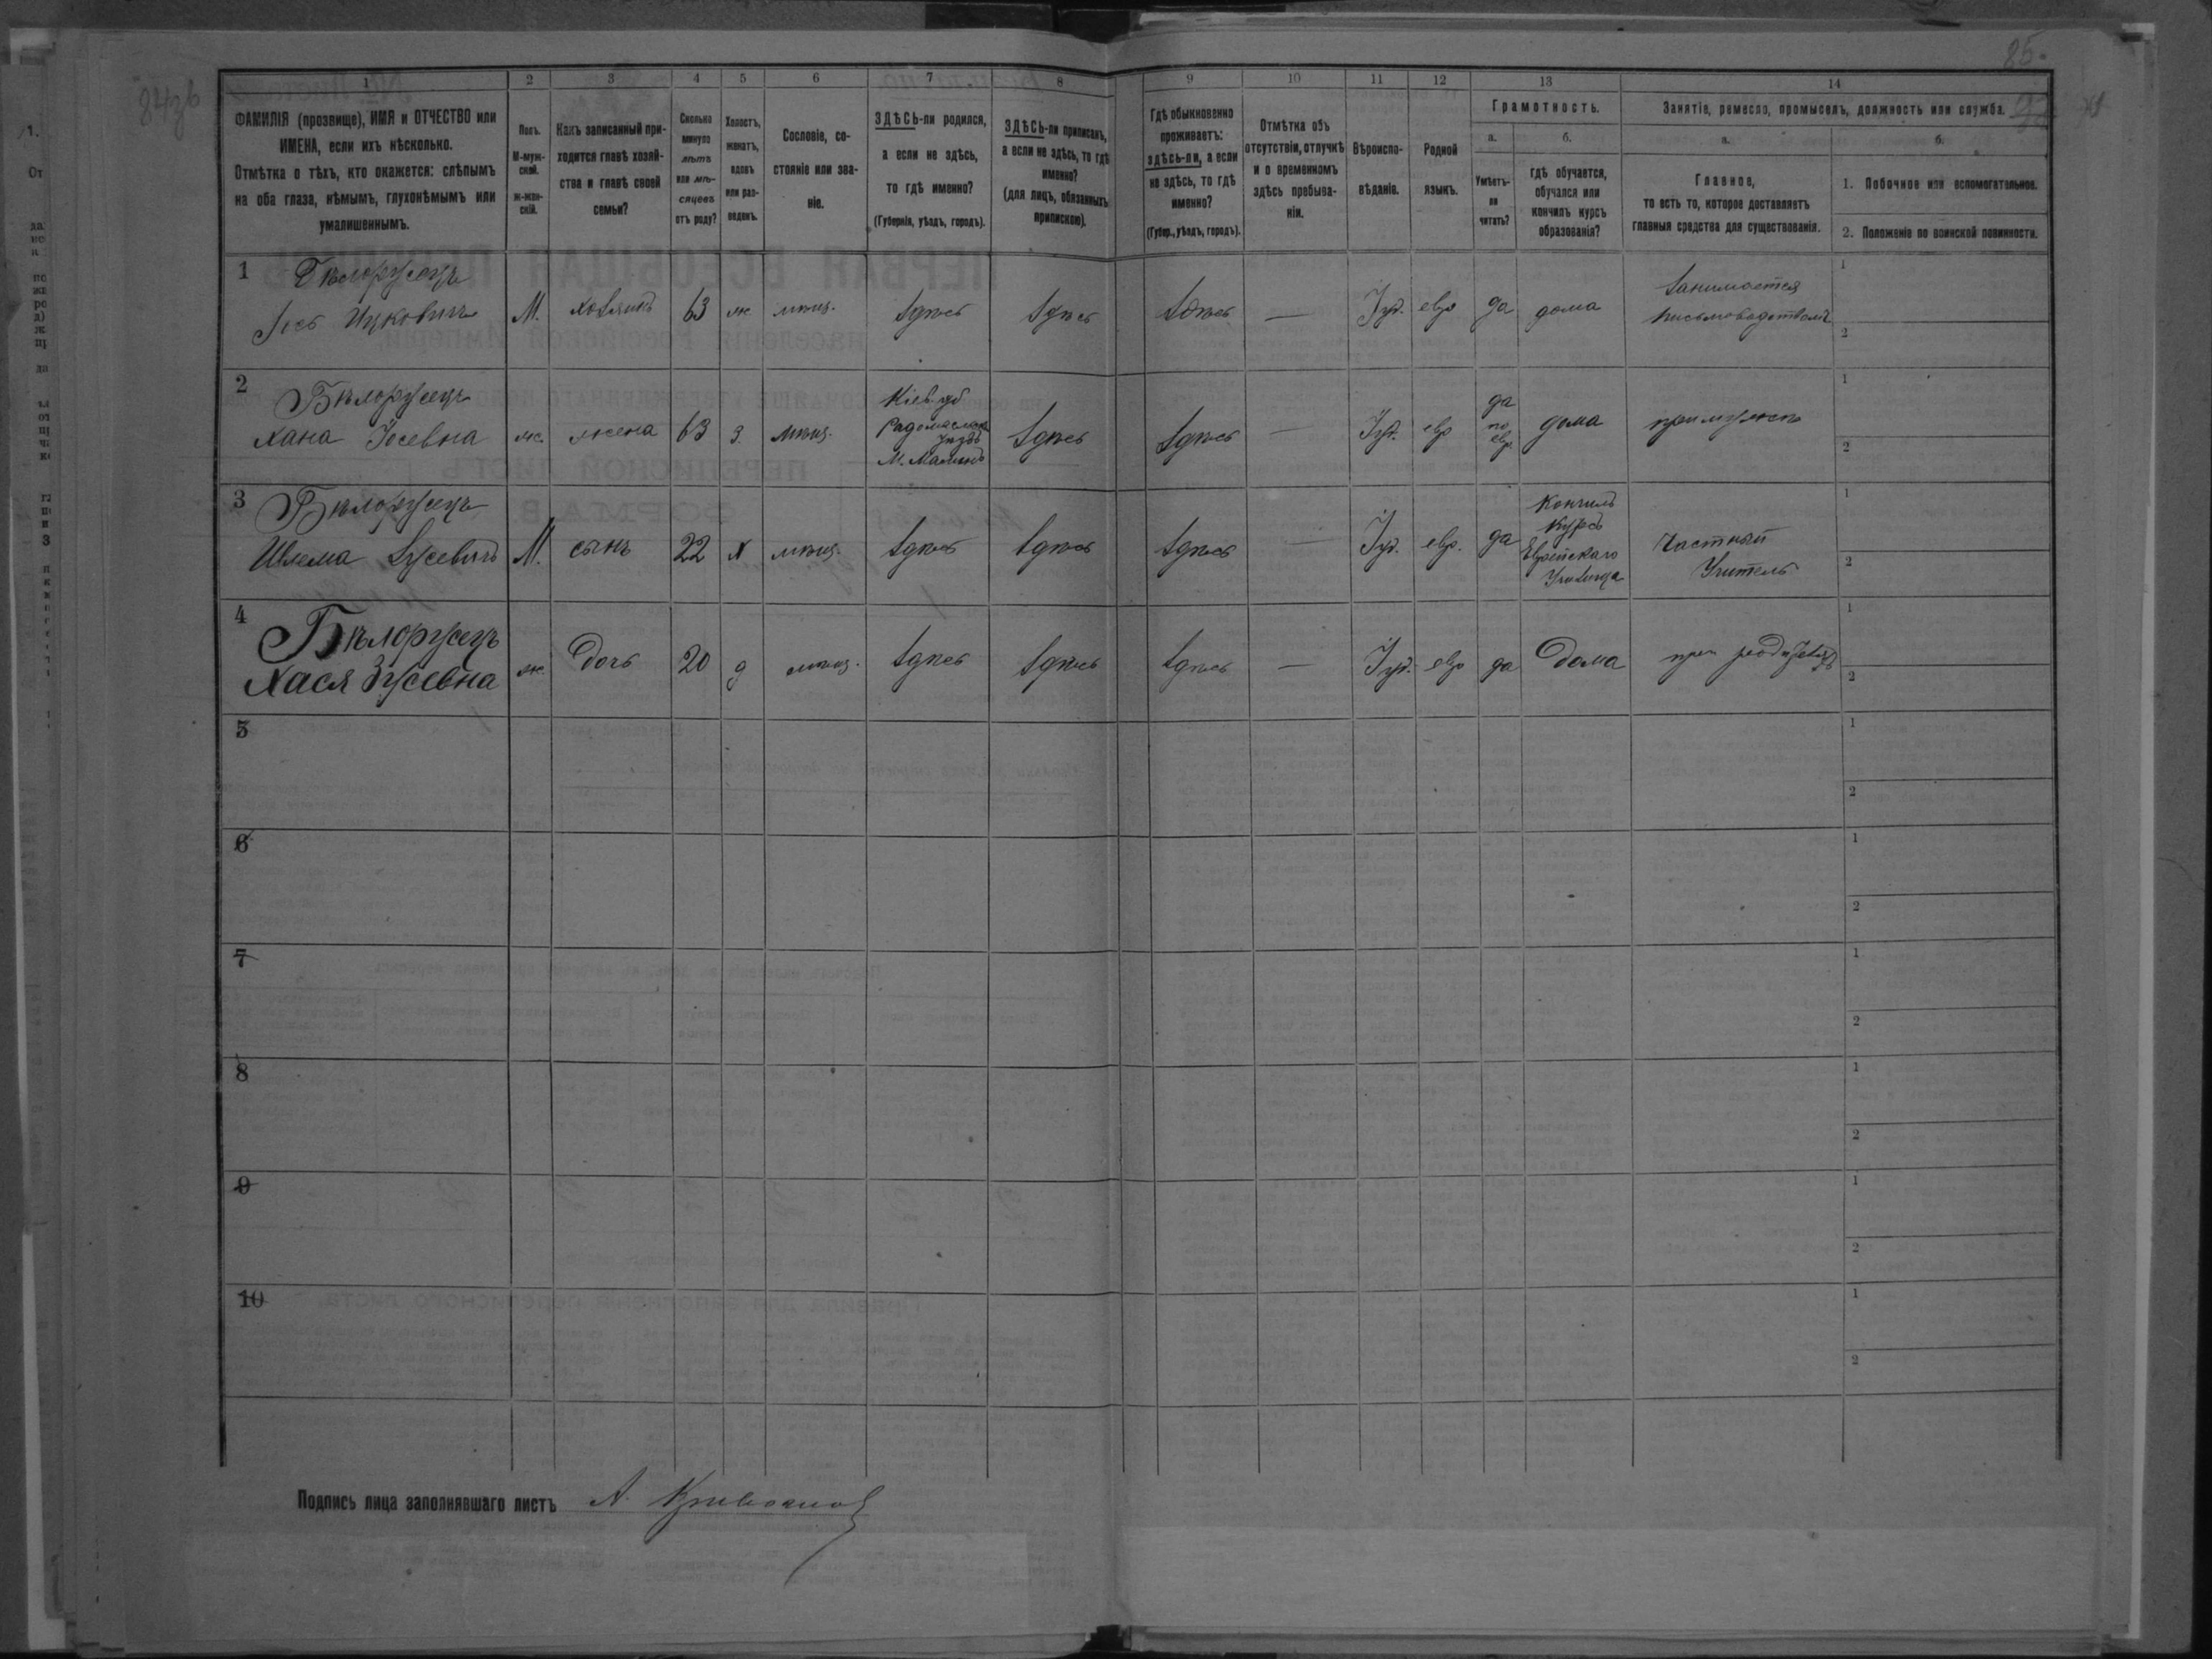 85.
1 2 3 4 5 6 7 8 9 10 11 12 13 14
ФАМИЛІЯ (прозвище), ИМЯ и ОТЧЕСТВО или
ИМЕНА, если ихъ нѣсколько.
Отмѣтка о тѣхъ, кто окажется: слѣпымъ
на оба глаза, нѣмымъ, глухонѣмымъ или
умалишеннымъ.
Полъ.
М-муж-
ской.
ж-жен-
скій.
Какъ записанный при-
ходится главѣ хозяй-
ства и главѣ своей
семьи?
Сколько
минуло
лѣтъ
или мѣ-
сяцевъ
отъ роду?
Холостъ,
женатъ,
вдовъ
или раз-
веденъ.
Сословіе, со-
стояніе или зва-
ніе.
ЗДѢСЬ-ли родился,
а если не здѣсь,
то гдѣ именно?
(Губернія, уѣздъ, городъ).
ЗДѢСЬ-ли приписанъ,
а если не здѣсь, то гдѣ
именно?
(для лицъ, обязанныхъ
припискою).
Гдѣ обыкновенно
проживаетъ:
здѣсь-ли, а если
не здѣсь, то гдѣ
именно?
(Губер., уѣздъ, городъ).
Отмѣтка объ
отсутствіи, отлучкѣ
и о временномъ
здѣсь пребыва-
ніи.
Вѣроиспо-
вѣданіе.
Родной
языкъ.
Грамотность.
а.
Умѣетъ-
ли
читать?
б.
гдѣ обучается,
обучался или
кончилъ курсъ
образованія?
Занятіе, ремесло, промыселъ, должность или служба.
а.
Главное,
то есть то, которое доставляетъ
главныя средства для существованія.
б.
1. Побочное или вспомогательное.
2. Положеніе по воинской повинности.
1 Бѣлоржецъ
Іось Ицковичъ М. хозяинъ 63 ж мѣщ. Здѣсь Здѣсь Здѣсь — Іуд. евр да дома Занимается
письмоводствомъ
1
2
2 Бѣлоржецъ
Хана Іосевна ж. жена 63 з. мѣщ. Кіев. губ
Радомысльск
Уѣздъ
М. Малинъ Здѣсь Здѣсь — Іуд. евр да
по
евр дома при мужѣ
1
2
3 Бѣлоржецъ
Шлема Зусевичъ М. сынъ 22 х мѣщ. Здѣсь Здѣсь Здѣсь — Іуд. евр. да Кончилъ
Курсъ
Еврейскаго
Училища Частный
Учитель
1
2
4 Бѣлоржецъ
Хася Зусевна ж. Дочь 20 д мѣщ. Здѣсь Здѣсь Здѣсь — Іуд. евр да Дома при родителяхъ
1
2
5 1
2
6 1
2
7 1
2
8 1
2
9 1
2
10 1
2
Подпись лица заполнявшаго листъ А.